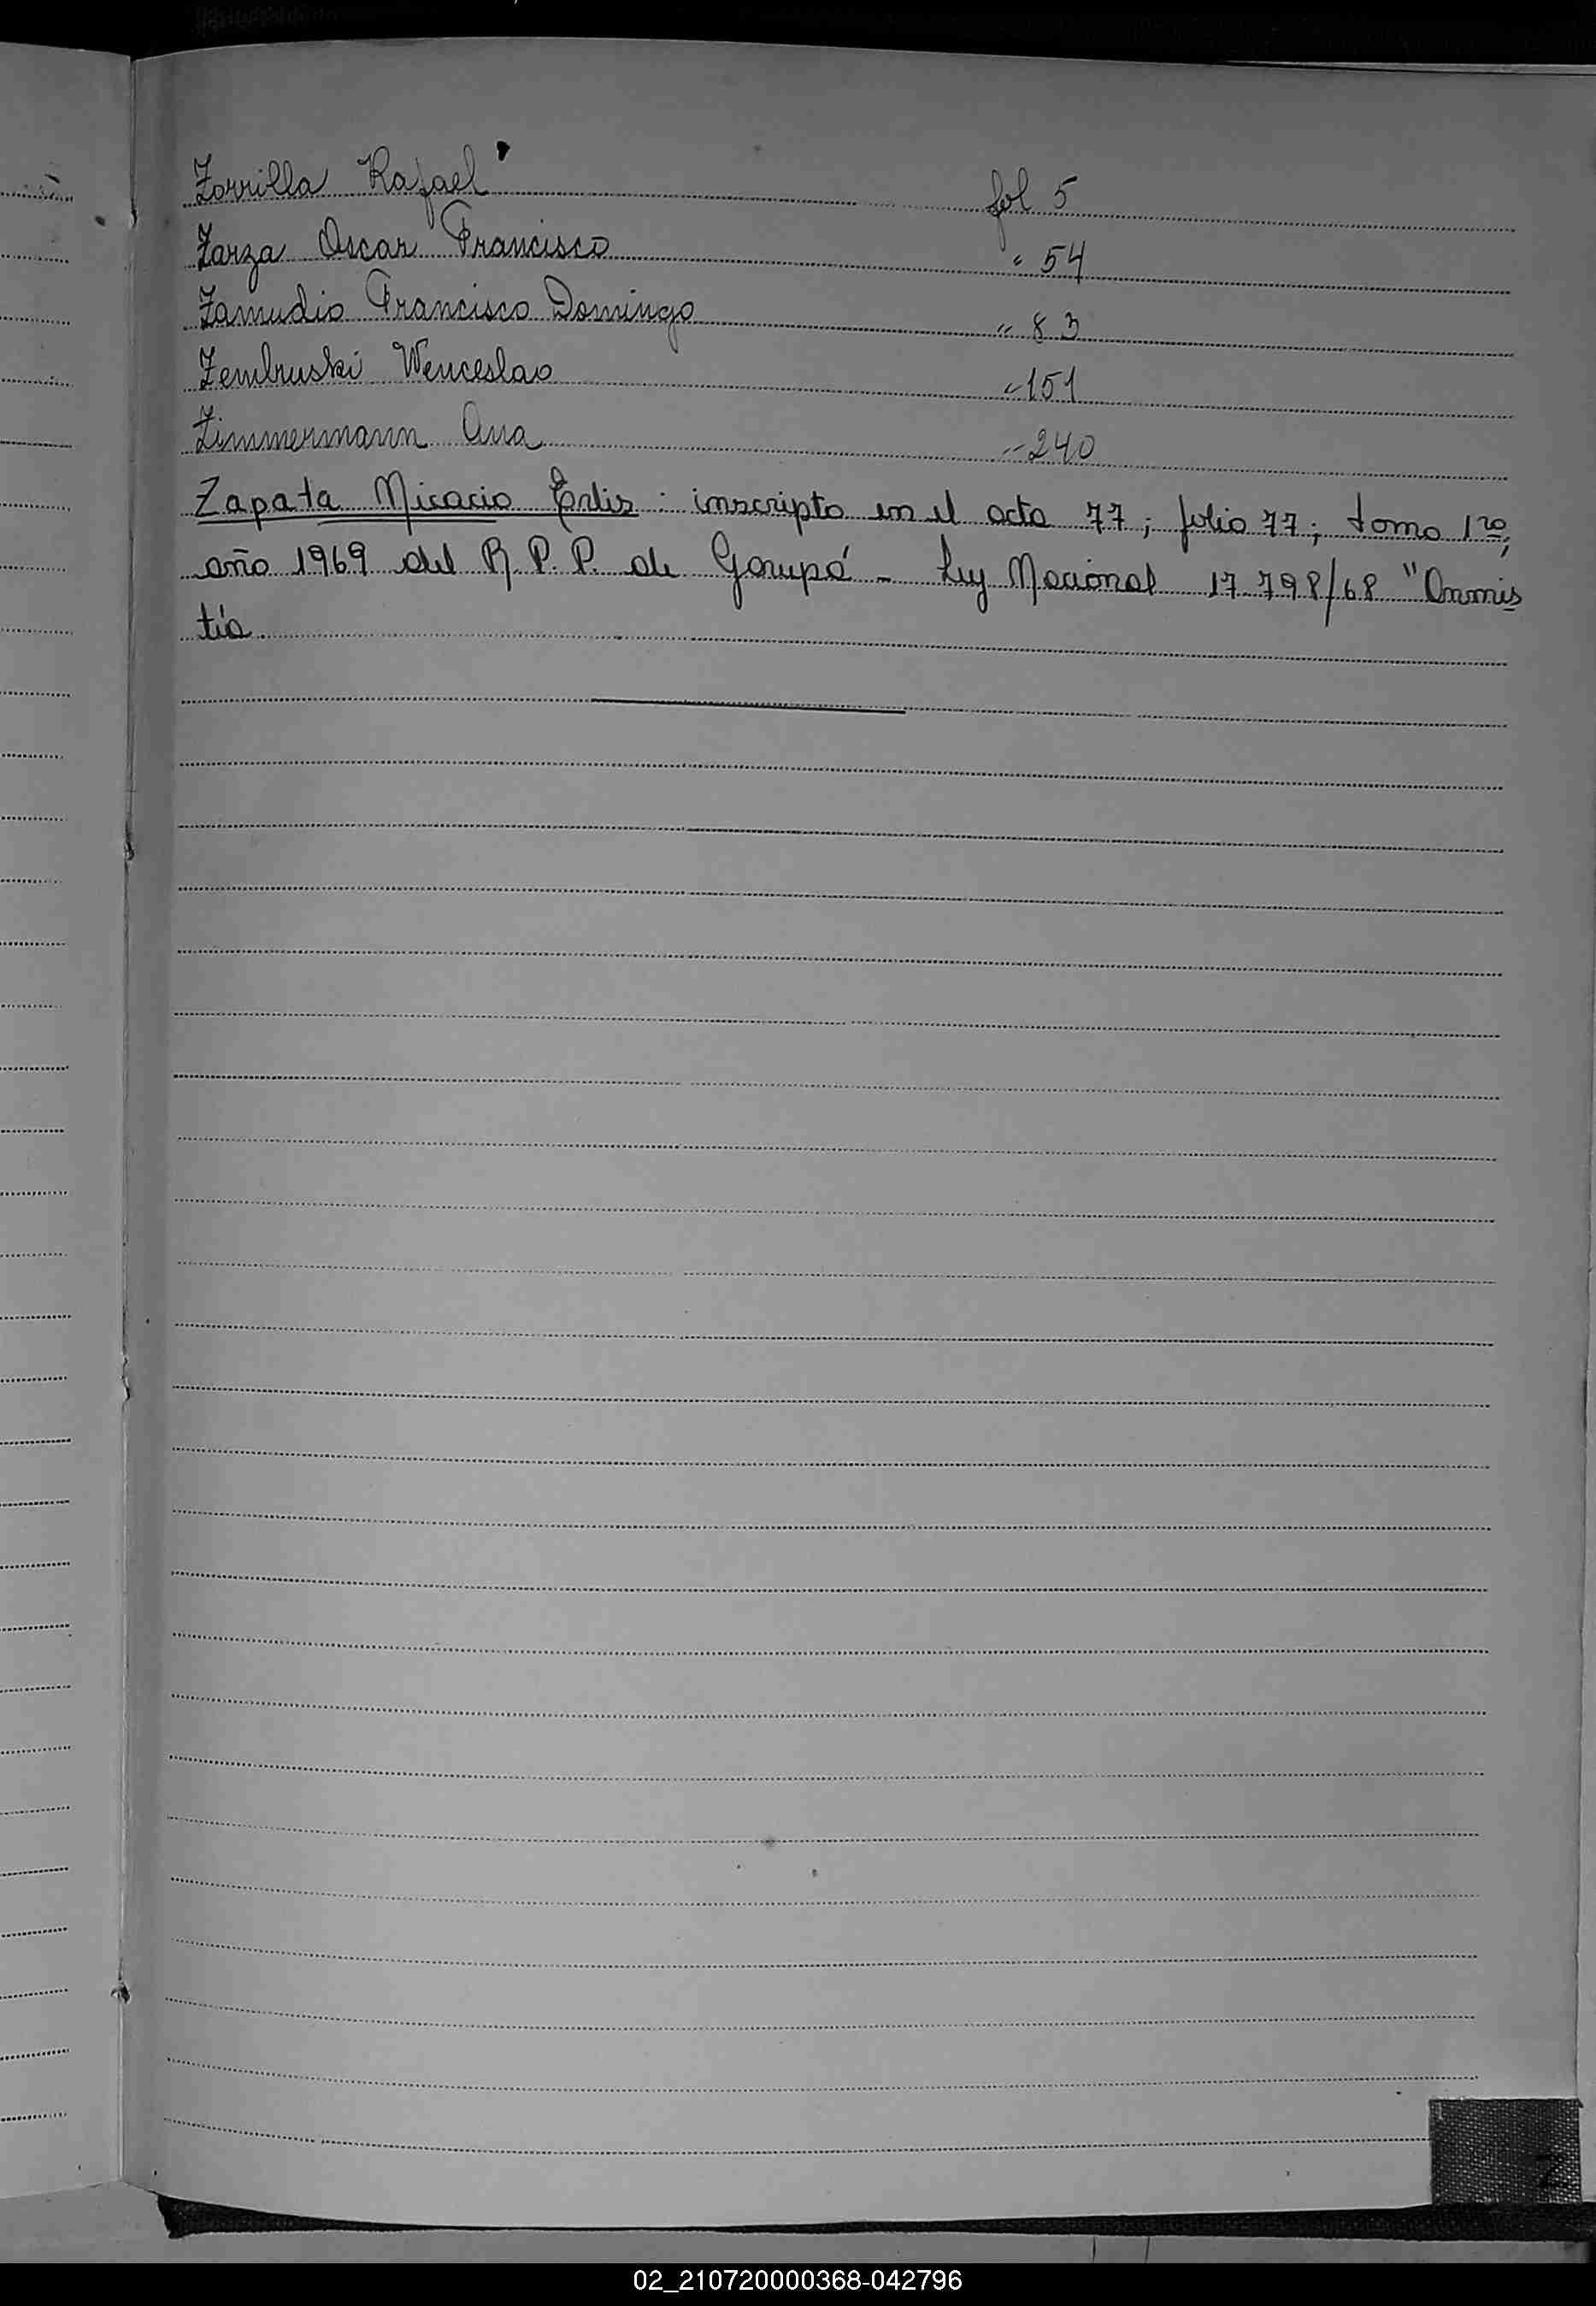 Zorrilla Rafael fol 5
Zarza Oscar Francisco " 54
Zamudio Francisco Domingo " 83
Zembruski Wenceslao " 151
Zimmermann Ana " 240
Zapata Nicacio : inscripto en el acta 77; folio 77; tomo 1ro,
año 1969 del R.P.P. de Garupá - Ley Nacional 17.798/68 "Amnis
tía.
Z
02_210720000368-042796